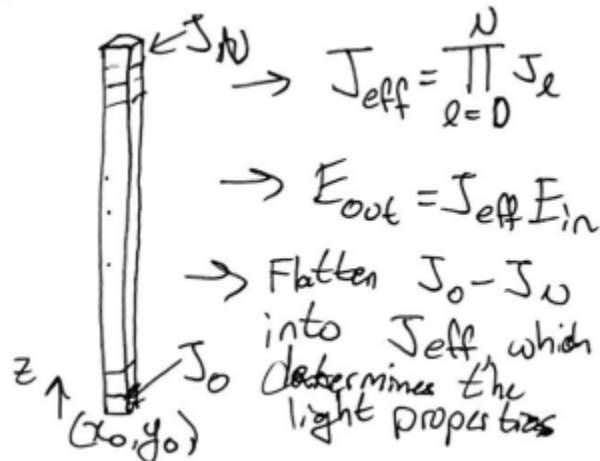 J_N
→ J_eff = ∏_{l=0}^{N} J_l
→ E_out = J_eff E_in
→ Flatten J_0 - J_N
into J_eff, which
determines the
light properties
J_0
z ↑
(x_0, y_0,